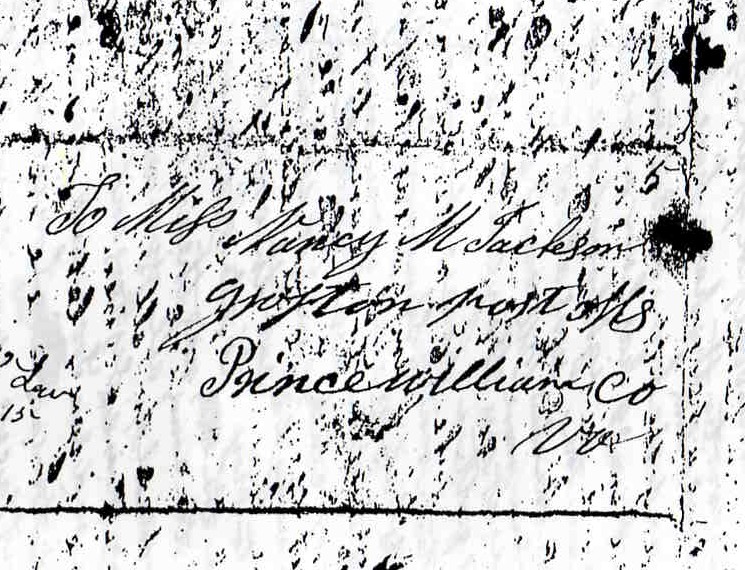 5
To Miss Nancy M Jackson
post
Prince william Co
Va
Law
15